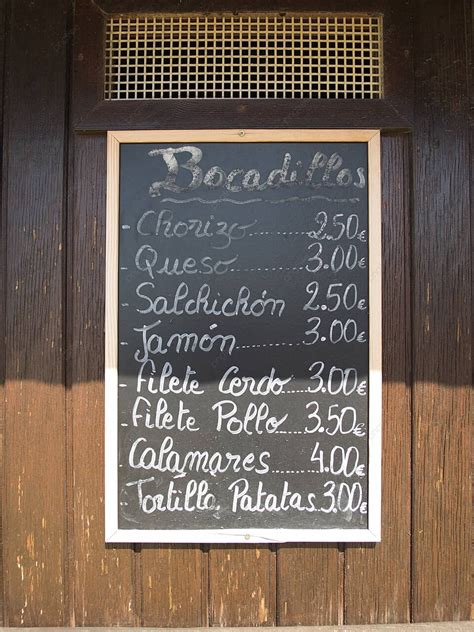 Bocadillos
- Chorizo........2.50€
- Queso..............3.00€
- Salchichón...2.50€
- Jamón..............3.00€
- Filete Cerdo...3.00€
- Filete Pollo.....3.50€
- Calamares.......4.00€
- Tortilla Patatas 3.00€